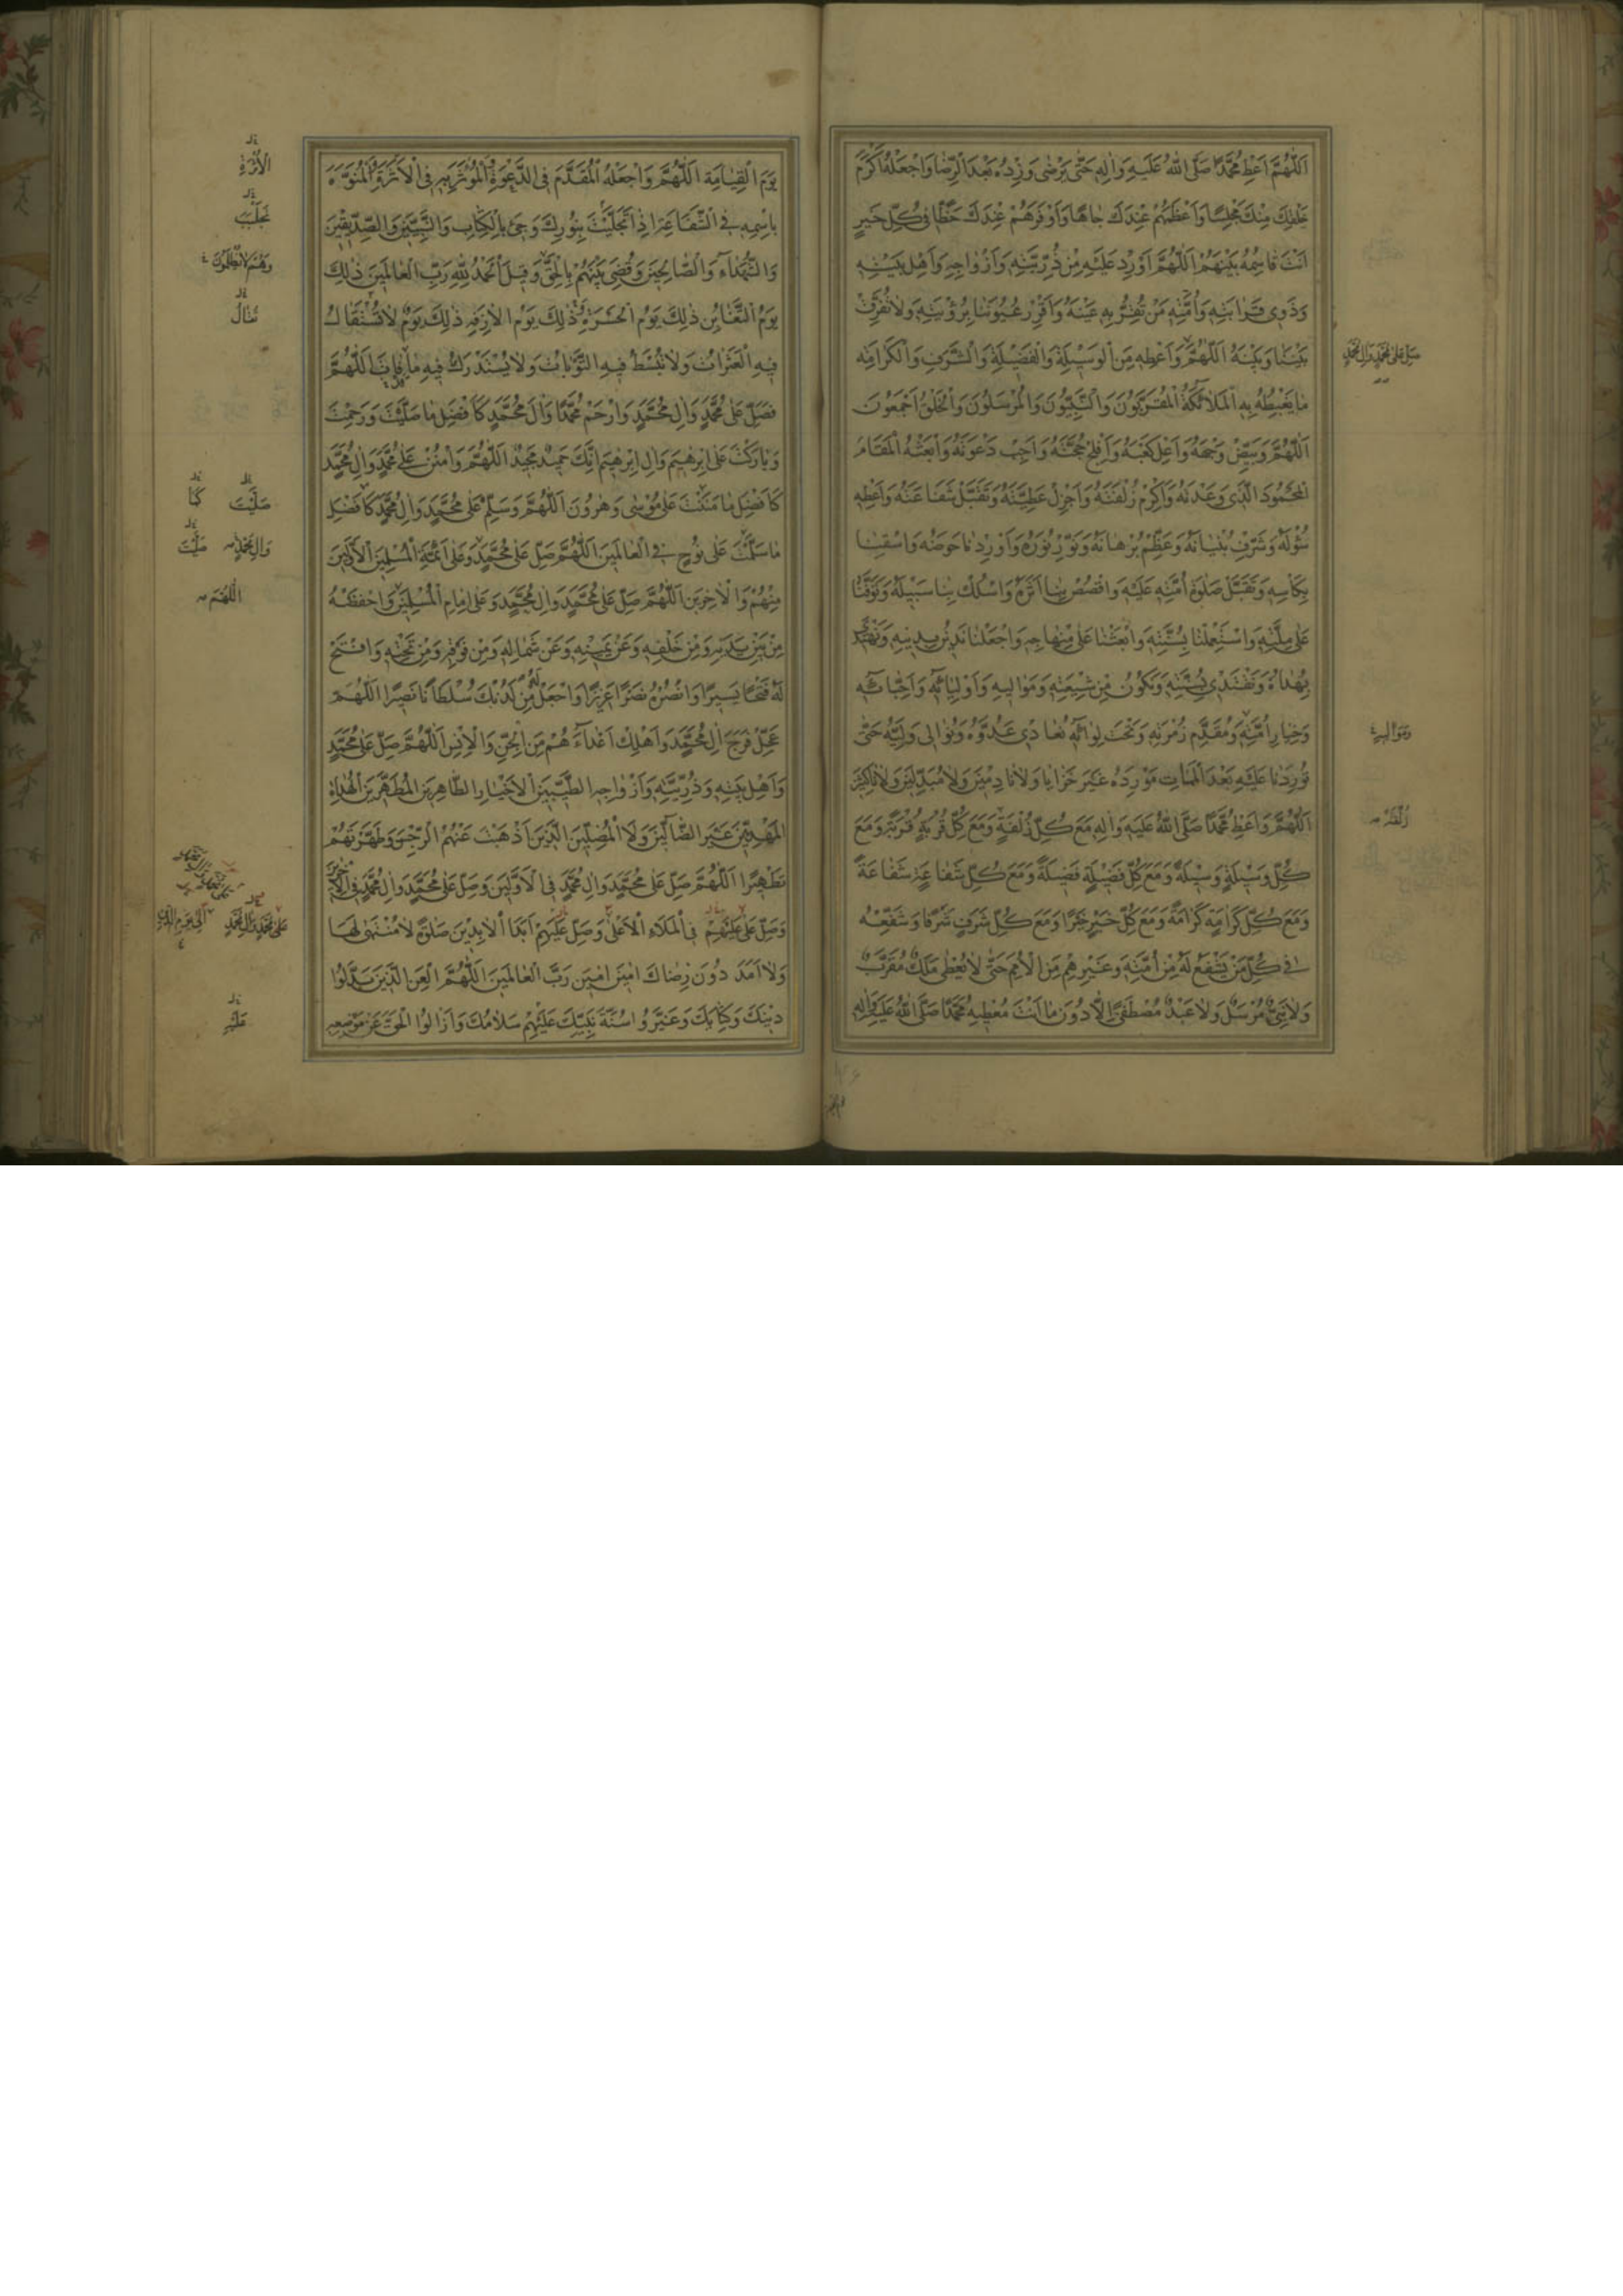 اَللّهُمَّ اَعْطِ مُحَمَّدًا صَلَّى اللهُ عَلَيْهِ وَالِهِ حَتّى يَرْضى وَزِدْهُ بَعْدَ الرِّضا وَاجْعَلْهُ اَكْرَمَ
خَلْقِكَ مِنْكَ مَجْلِسًا وَاَعْظَمَهُمْ عِنْدَكَ جاهًا وَاَوْفَرَهُمْ عِنْدَكَ حَظًّا فى كُلِّ خَيْرٍ
اَنْتَ قاسِمُهُ بَيْنَهُمْ اَللّهُمَّ اَوْرِدْ عَلَيْهِ مِنْ ذُرِّيَّتِهِ وَاَزْواجِهِ وَاَهْلِ بَيْتِهِ
وَذَوِى قَرابَتِهِ وَاُمَّتِهِ مَنْ تُقِرُّ بِهِ عَيْنَهُ وَاَقْرِرْ عُيُونَنا بِرُؤْيَتِهِ وَلا تُفَرِّقْ
بَيْنَنا وَبَيْنَهُ اَللّهُمَّ وَاَعْطِهِ مِنَ الْوَسيلَةِ وَالْفَضيلَةِ وَالشَّرَفِ وَالْكَرامَةِ
صَلِّ عَلى مُحَمَّدٍ وَالِ مُحَمَّدٍ
ما يَغْبِطُهُ بِهِ الْمَلائِكَةُ الْمُقَرَّبُونَ وَالنَّبِيُّونَ وَالْمُرْسَلُونَ وَالْخَلْقُ اَجْمَعُونَ
اَللّهُمَّ وَبَيِّضْ وَجْهَهُ وَاَعْلِ كَعْبَهُ وَاَفْلِجْ حُجَّتَهُ وَاَجِبْ دَعْوَتَهُ وَابْعَثْهُ الْمَقامَ
الْمَحْمُودَ الَّذى وَعَدْتَهُ وَاَكْرِمْ زُلْفَتَهُ وَاَجْزِلْ عَطِيَّتَهُ وَتَقَبَّلْ شَفاعَتَهُ وَاَعْطِهِ
سُؤْلَهُ وَشَرِّفْ بُنْيانَهُ وَعَظِّمْ بُرْهانَهُ وَنَوِّرْ نُورَهُ وَاَوْرِدْنا حَوْضَهُ وَاسْقِنا
بِكَأْسِهِ وَتَقَبَّلْ صَلوةَ اُمَّتِهِ عَلَيْهِ وَاقْصُصْ بِنا اَثَرَهُ وَاسْلُكْ بِنا سَبيلَهُ وَتَوَفَّنا
عَلى مِلَّتِهِ وَاسْتَعْمِلْنا بِسُنَّتِهِ وَابْعَثْنا عَلى مِنْهاجِهِ وَاجْعَلْنا نَدينُ بِدينِهِ وَنَهْتَدى
بِهُداهُ وَنَقْتَدى بِسُنَّتِهِ وَنَكُونُ مِنْ شيعَتِهِ وَمَواليهِ وَاَوْلِيائِهِ وَاَحِبّائِهِ
وَخِيارِ اُمَّتِهِ وَمُقَدَّمِ زُمْرَتِهِ وَتَحْتَ لِوائِهِ نُعادى عَدُوَّهُ وَنُوالى وَلِيَّهُ حَتّى
وَمَوَاليهِ
تُورِدَنا عَلَيْهِ بَعْدَ الْمَماتِ مَوْرِدَهُ غَيْرَ خَزايا وَلا نادِمينَ وَلا مُبَدِّلينَ وَلا ناكِثينَ
اَللّهُمَّ وَاَعْطِ مُحَمَّدًا صَلَّى اللهُ عَلَيْهِ وَالِهِ مَعَ كُلِّ زُلْفَةٍ وَمَعَ كُلِّ قُرْبَةٍ قُرْبَةً وَمَعَ
زُلْفَةً
كُلِّ وَسيلَةٍ وَسيلَةً وَمَعَ كُلِّ فَضيلَةٍ فَضيلَةً وَمَعَ كُلِّ شَفاعَةٍ شَفاعَةً
وَمَعَ كُلِّ كَرامَةٍ كَرامَةً وَمَعَ كُلِّ خَيْرٍ خَيْرًا وَمَعَ كُلِّ شَرَفٍ شَرَفًا وَشَفِّعْهُ
فى كُلِّ مَنْ يَشْفَعُ لَهُ مِنْ اُمَّتِهِ وَغَيْرِهِمْ مِنَ الْاُمَمِ حَتّى لا يُعْطى مَلَكٌ مُقَرَّبٌ
وَلا نَبِىٌّ مُرْسَلٌ وَلا عَبْدٌ مُصْطَفًى اِلّا دُونَ ما اَنْتَ مُعْطيهِ مُحَمَّدًا صَلَّى اللهُ عَلَيْهِ وَالِهِ
يَوْمَ الْقِيامَةِ اَللّهُمَّ وَاجْعَلْهُ الْمُقَدَّمَ فِى الدَّعْوَةِ وَالْمُؤْثَرَ بِهِ فِى الْاَثَرَةِ وَالْمُنَوَّهَ
الْاُثْرَةِ
بِاسْمِهِ فِى الشَّفاعَةِ اِذا تَجَلَّيْتَ بِنُورِكَ وَجىءَ بِالْكِتابِ وَالنَّبِيّينَ وَالصِّدّيقينَ
وَالشُّهَداءِ وَالصّالِحينَ وَقُضِىَ بَيْنَهُمْ بِالْحَقِّ وَقيلَ الْحَمْدُ لِلّهِ رَبِّ الْعالَمينَ ذلِكَ
وَهُمْ لا يُظْلَمُونَ
يَوْمُ التَّغابُنِ ذلِكَ يَوْمُ الْحَسْرَةِ ذلِكَ يَوْمُ الْازِفَةِ ذلِكَ يَوْمٌ لا تُسْتَقالُ
تُقالُ
فيهِ الْعَثَراتُ وَلا تُبْسَطُ فيهِ التَّوْباتُ وَلا يُسْتَدْرَكُ فيهِ ما فاتَ اَللّهُمَّ
فَصَلِّ عَلى مُحَمَّدٍ وَالِ مُحَمَّدٍ وَارْحَمْ مُحَمَّدًا وَالَ مُحَمَّدٍ كَاَفْضَلِ ما صَلَّيْتَ وَرَحِمْتَ
وَبارَكْتَ عَلى اِبْرهيمَ وَالِ اِبْرهيمَ اِنَّكَ حَميدٌ مَجيدٌ اَللّهُمَّ وَامْنُنْ عَلى مُحَمَّدٍ وَالِ مُحَمَّدٍ
كَاَفْضَلِ ما مَنَنْتَ عَلى مُوسى وَهرُونَ اَللّهُمَّ وَسَلِّمْ عَلى مُحَمَّدٍ وَالِ مُحَمَّدٍ كَاَفْضَلِ
صَلَّيْتَ كَما
ما سَلَّمْتَ عَلى نُوحٍ فِى الْعالَمينَ اَللّهُمَّ صَلِّ عَلى مُحَمَّدٍ وَعَلى اَئِمَّةِ الْمُسْلِمينَ الْاَوَّلينَ
وَالِ مُحَمَّدٍ
مِنْهُمْ وَالْاخِرينَ اَللّهُمَّ صَلِّ عَلى مُحَمَّدٍ وَالِ مُحَمَّدٍ وَعَلى اِمامِ الْمُسْلِمينَ وَاحْفَظْهُ
اَللّهُمَّ
مِنْ بَيْنِ يَدَيْهِ وَمِنْ خَلْفِهِ وَعَنْ يَمينِهِ وَعَنْ شِمالِهِ وَمِنْ فَوْقِهِ وَمِنْ تَحْتِهِ وَافْتَحْ
لَهُ فَتْحًا يَسيرًا وَانْصُرْهُ نَصْرًا عَزيزًا وَاجْعَلْ لَهُ مِنْ لَدُنْكَ سُلْطانًا نَصيرًا اَللّهُمَّ
عَجِّلْ فَرَجَ الِ مُحَمَّدٍ وَاَهْلِكْ اَعْداءَهُمْ مِنَ الْجِنِّ وَالْاِنْسِ اَللّهُمَّ صَلِّ عَلى مُحَمَّدٍ
وَاَهْلِ بَيْتِهِ وَذُرِّيَّتِهِ وَاَزْواجِهِ الطَّيِّبينَ الْاَخْيارِ الطّاهِرينَ الْمُطَهَّرينَ الْهُداةِ
الْمَهْدِيّينَ غَيْرِ الضّالّينَ وَلَا الْمُضِلّينَ الَّذينَ اَذْهَبْتَ عَنْهُمُ الرِّجْسَ وَطَهَّرْتَهُمْ
تَطْهيرًا اَللّهُمَّ صَلِّ عَلى مُحَمَّدٍ وَالِ مُحَمَّدٍ فِى الْاَوَّلينَ وَصَلِّ عَلى مُحَمَّدٍ وَالِ مُحَمَّدٍ فِى الْاخِرينَ
وَصَلِّ عَلَيْهِمْ فِى الْمَلَاءِ الْاَعْلى وَصَلِّ عَلَيْهِمْ اَبَدَ الْابِدينَ صَلوةً لا مُنْتَهى لَها
عَلى مُحَمَّدٍ وَالِ مُحَمَّدٍ اِلى يَوْمِ الدّينِ
وَلا اَمَدَ دُونَ رِضاكَ امينَ امينَ رَبَّ الْعالَمينَ اَللّهُمَّ الْعَنِ الَّذينَ بَدَّلُوا
دينَكَ وَكِتابَكَ وَغَيَّرُوا سُنَّةَ نَبِيِّكَ عَلَيْهِ سَلامُكَ وَاَزالُوا الْحَقَّ عَنْ مَوْضِعِهِ
عَلَيْهِ